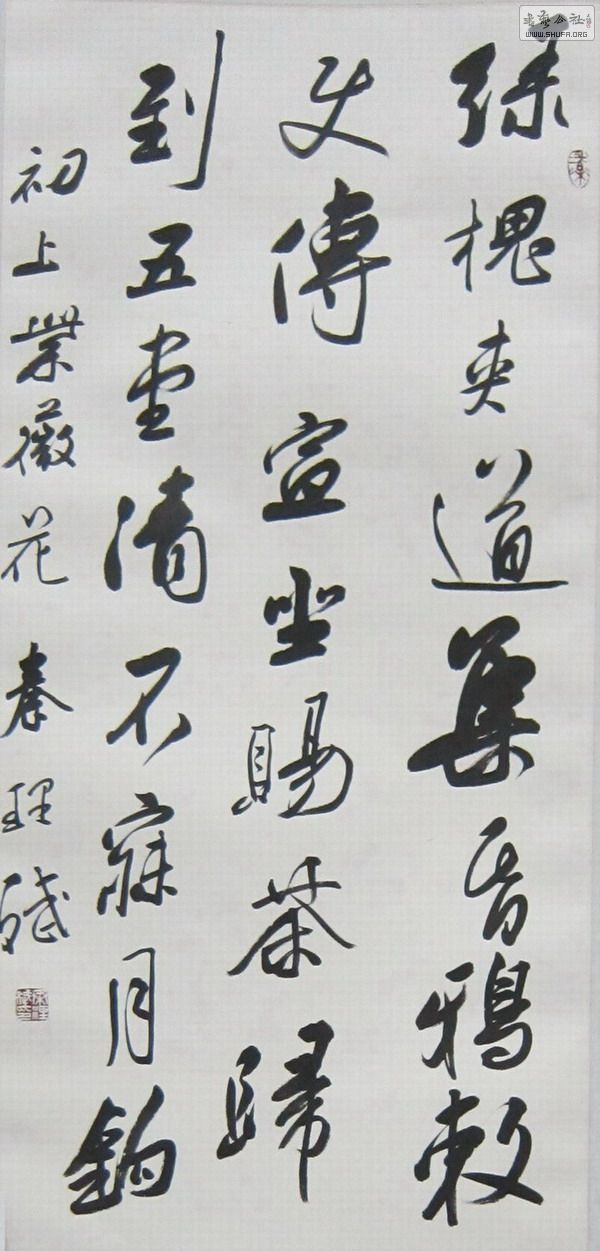 緑槐夾道集昏鴉敕
使傳宣坐賜茶歸
到玉堂清不寐月鈎
初上紫薇花 秦理斌
书艺公社
WWW.SHUFA.ORG